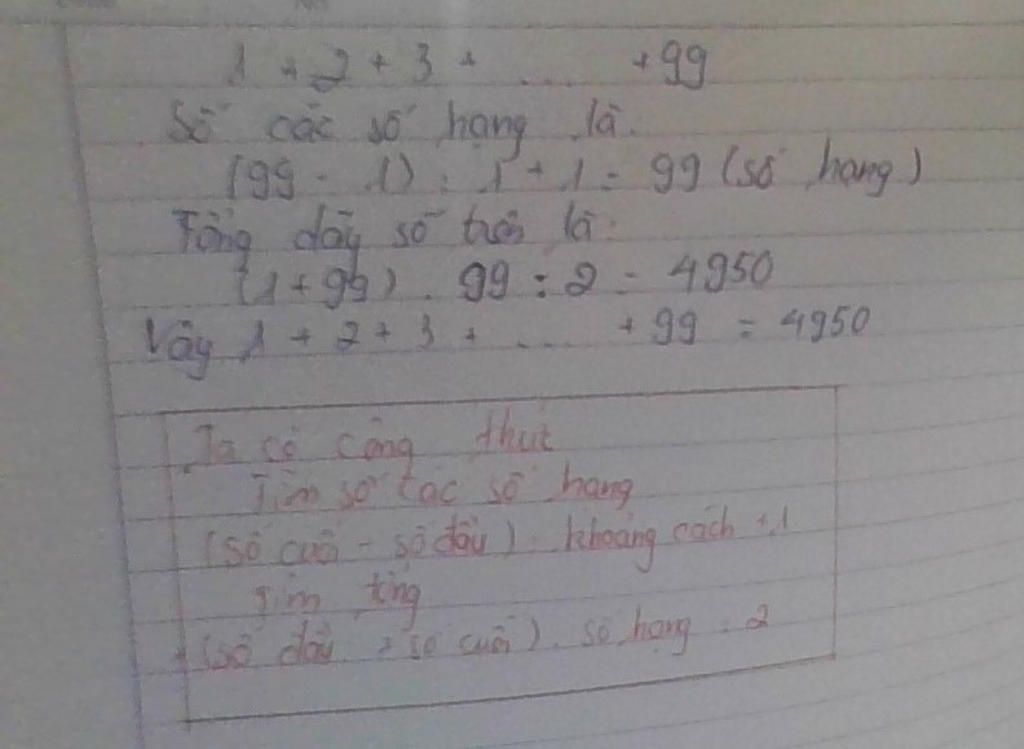 1 + 2 + 3 + .... +99
Số các số hạng là.
(99 - 1) : 1 + 1 = 99 (số hạng)
Tổng dãy số trên là:
(1+99) . 99 : 2 = 4950
Vậy 1 + 2 + 3 + .... + 99 = 4950
Ta có công thức
Tìm số các số hạng
(số cuối - số đầu) : khoảng cách + 1
Tìm tổng
(số đầu + số cuối) . số hạng : 2